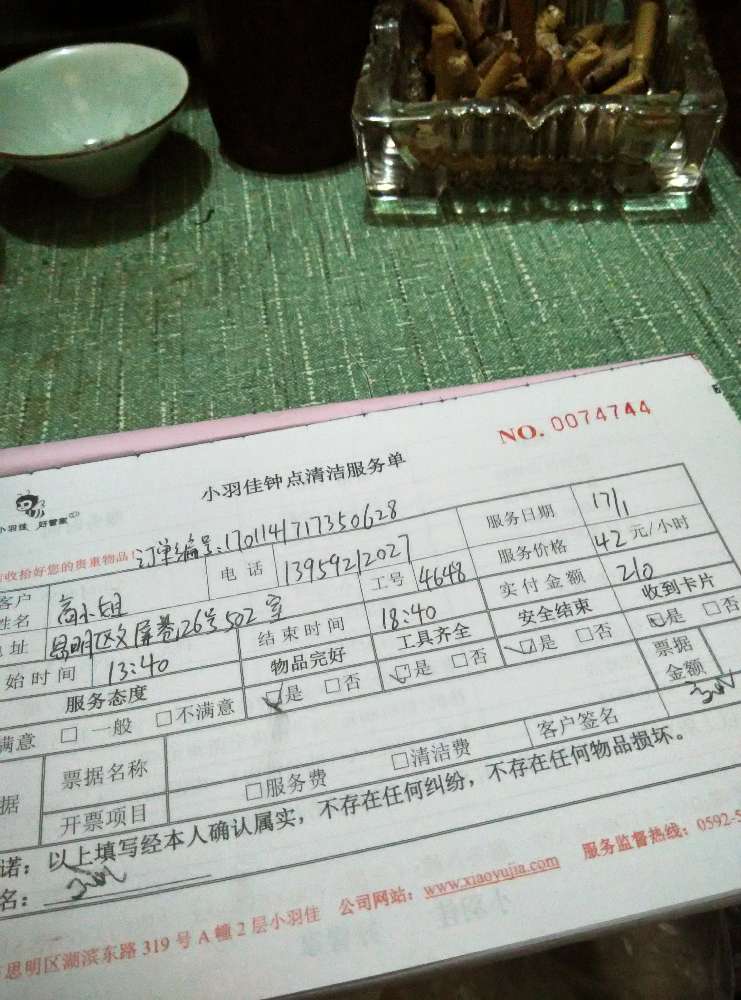 NO. 0074744
小羽佳钟点清洁服务单
小羽佳 好管家
收拾好您的贵重物品！ 订单编号:170114171735 0628
服务日期 17/1
客户姓名 高小姐 电话 13959212027 服务价格 42元/小时
地址 思明区文屏巷126号502室 工号 4648 实付金额 210
始时间 13:40 结束时间 18:40 安全结束 收到卡片
服务态度 物品完好 工具齐全 □是 □否 □是 □否
满意 □ 一般 □不满意 □是 □否 □是 □否 票据金额
据 票据名称 客户签名
开票项目 □服务费 □清洁费
诺：以上填写经本人确认属实，不存在任何纠纷，不存在任何物品损坏。
名：
思明区湖滨东路319号A幢2层小羽佳 公司网站：www.xiaoyujia.com 服务监督热线：0592-5